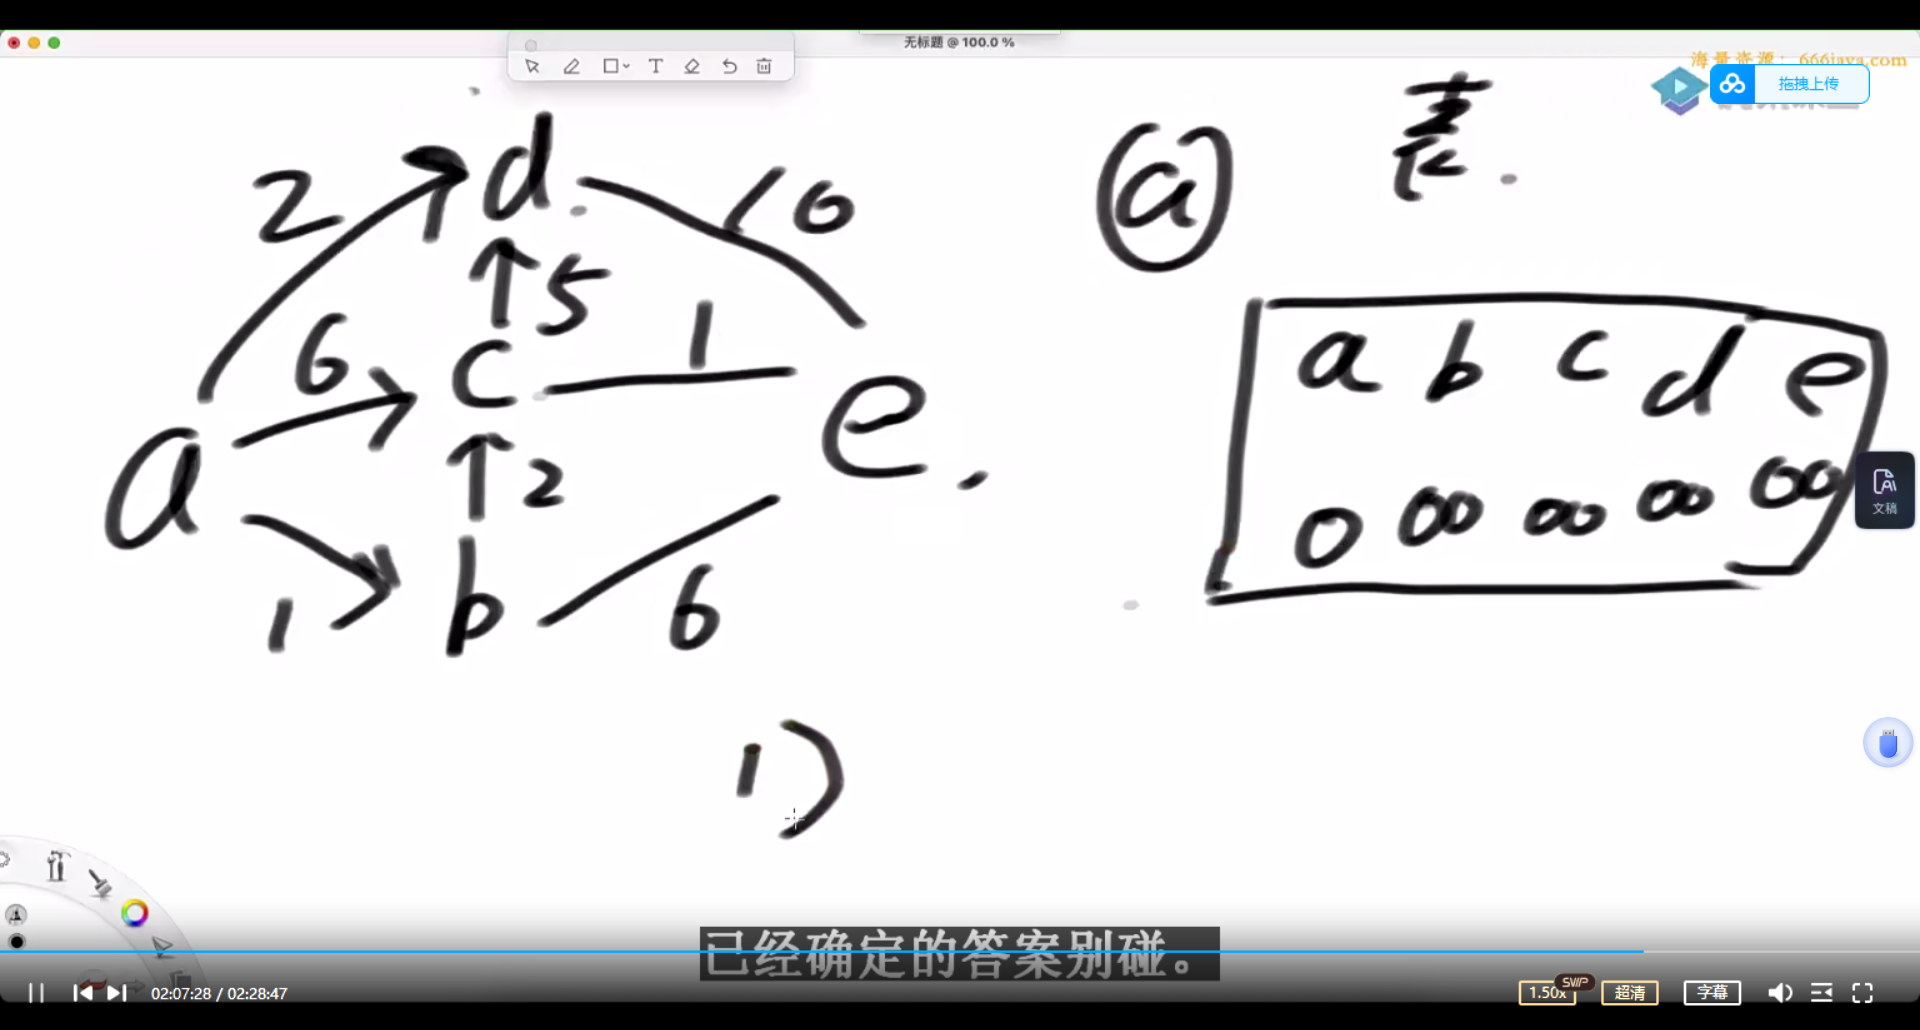 无标题 @ 100.0 %
海量资源：666java.com
拖拽上传
T
表.
a
2
d
10
5
6
c
1
a
e
2
1
b
6
a b c d e
0 ∞ ∞ ∞ ∞
文稿
1)
已经确定的答案别碰。
02:07:28 / 02:28:47
1.50x
SVIP
超清
字幕